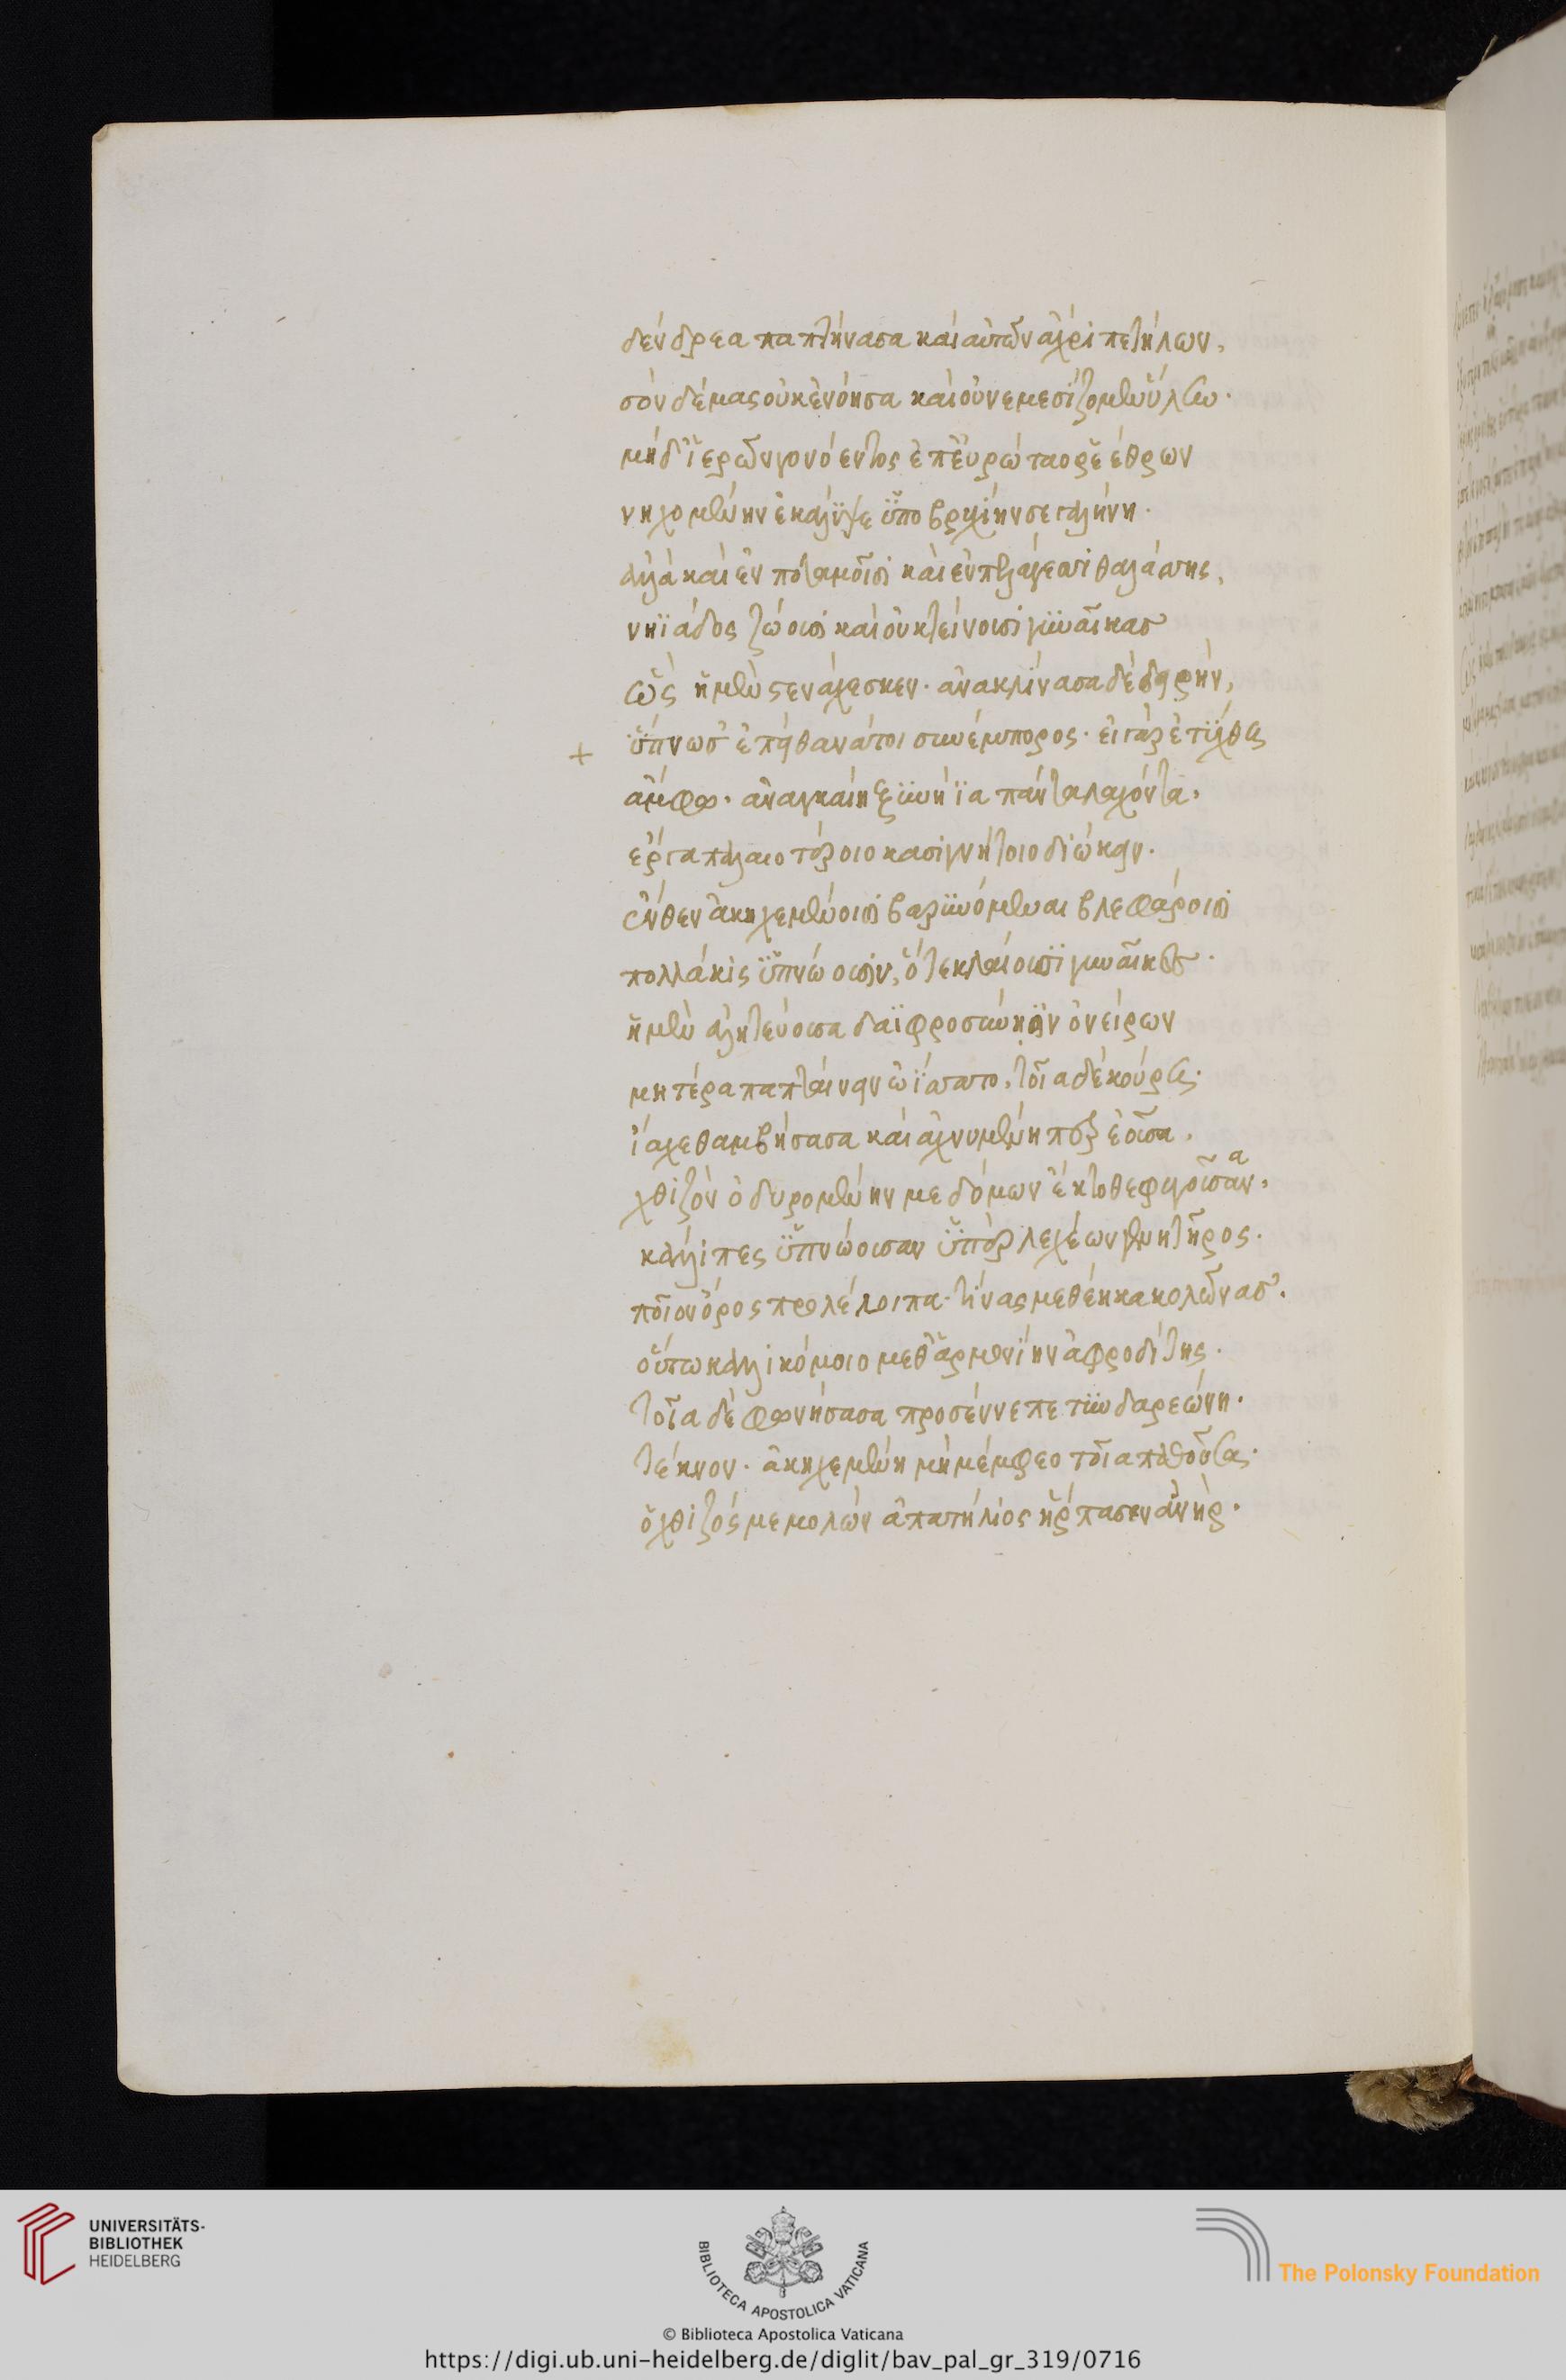 δένδρεα παπτήνασα καὶ αὐτῶν ἄχρι πετήλων,
σὸν δέμας οὐκ ἐνόησα καὶ οὐ νεμεσίζομεν ὕλην.
μὴ δ' ἱερῶν γονόεντος ἐπ' εὐρώταο ῥεέθρων
νηχομένην ἐκάλυψε ὑποβρυχίην σε γαλήνη.
ἀλλὰ καὶ ἐν ποταμοῖσι καὶ ἐν πελάγεσσι θαλάσσης,
νηϊάδος ζώουσι καὶ οὐ κτείνουσι γυναῖκασ
ὣς ἡ μὲν στενάχεσκεν. ἀνακλίνασα δὲ δειρήν,
+ ὕπνωσ' ἔπει θανάτοι συνέμπορος. εἰ γὰρ ἐτύχθης
ἄμφω. ἀναγκαίη ξυνήϊα πάντα λαχόντα.
ἔργα παλαιοτέροιο κασιγνήτοιο διώκειν.
ἔνθεν ἀκηχεμένοισι βαρυνόμεναι βλεφάροισι
πολλάκις ὑπνώουσιν, ὅτε κλαίουσι γυναῖκες.
ἡ μὲν ἀλητεύουσα δαϊφροσύνῃσιν ὀνείρων
μητέρα παπταίνειν ὠΐσσατο, τοῖα δὲ κούρης.
ἴαχε θαμβήσασα καὶ ἀχνυμένη περ ἐοῦσα.
χθιζὸν ὀδυρομένην με δόμων ἔκτοθε φυγοῦσαν α.
κάλλιπες ὑπνώουσαν ὑπὲρ λεχέων γενητῆρος.
ποῖον ὄρος προλέλοιπα. τίνας μεθέηκα κολῶνασ.
οὕτω καλλικόμοιο μεθ' ἁρμονΐην ἀφροδίτης.
τοῖα δὲ φωνήσασα προσέννεπε τυνδαρεώνη.
τέκνον. ἀκηχεμένη μὴ μέμφεο τοῖα παθούσης.
ὁ χθιζός με μολὼν ἀπατήλιος ἥρπασεν ἀνὴρ.
UNIVERSITÄTS-
BIBLIOTHEK
HEIDELBERG
BIBLIOTECA APOSTOLICA VATICANA
The Polonsky Foundation
© Biblioteca Apostolica Vaticana
https://digi.ub.uni-heidelberg.de/diglit/bav_pal_gr_319/0716